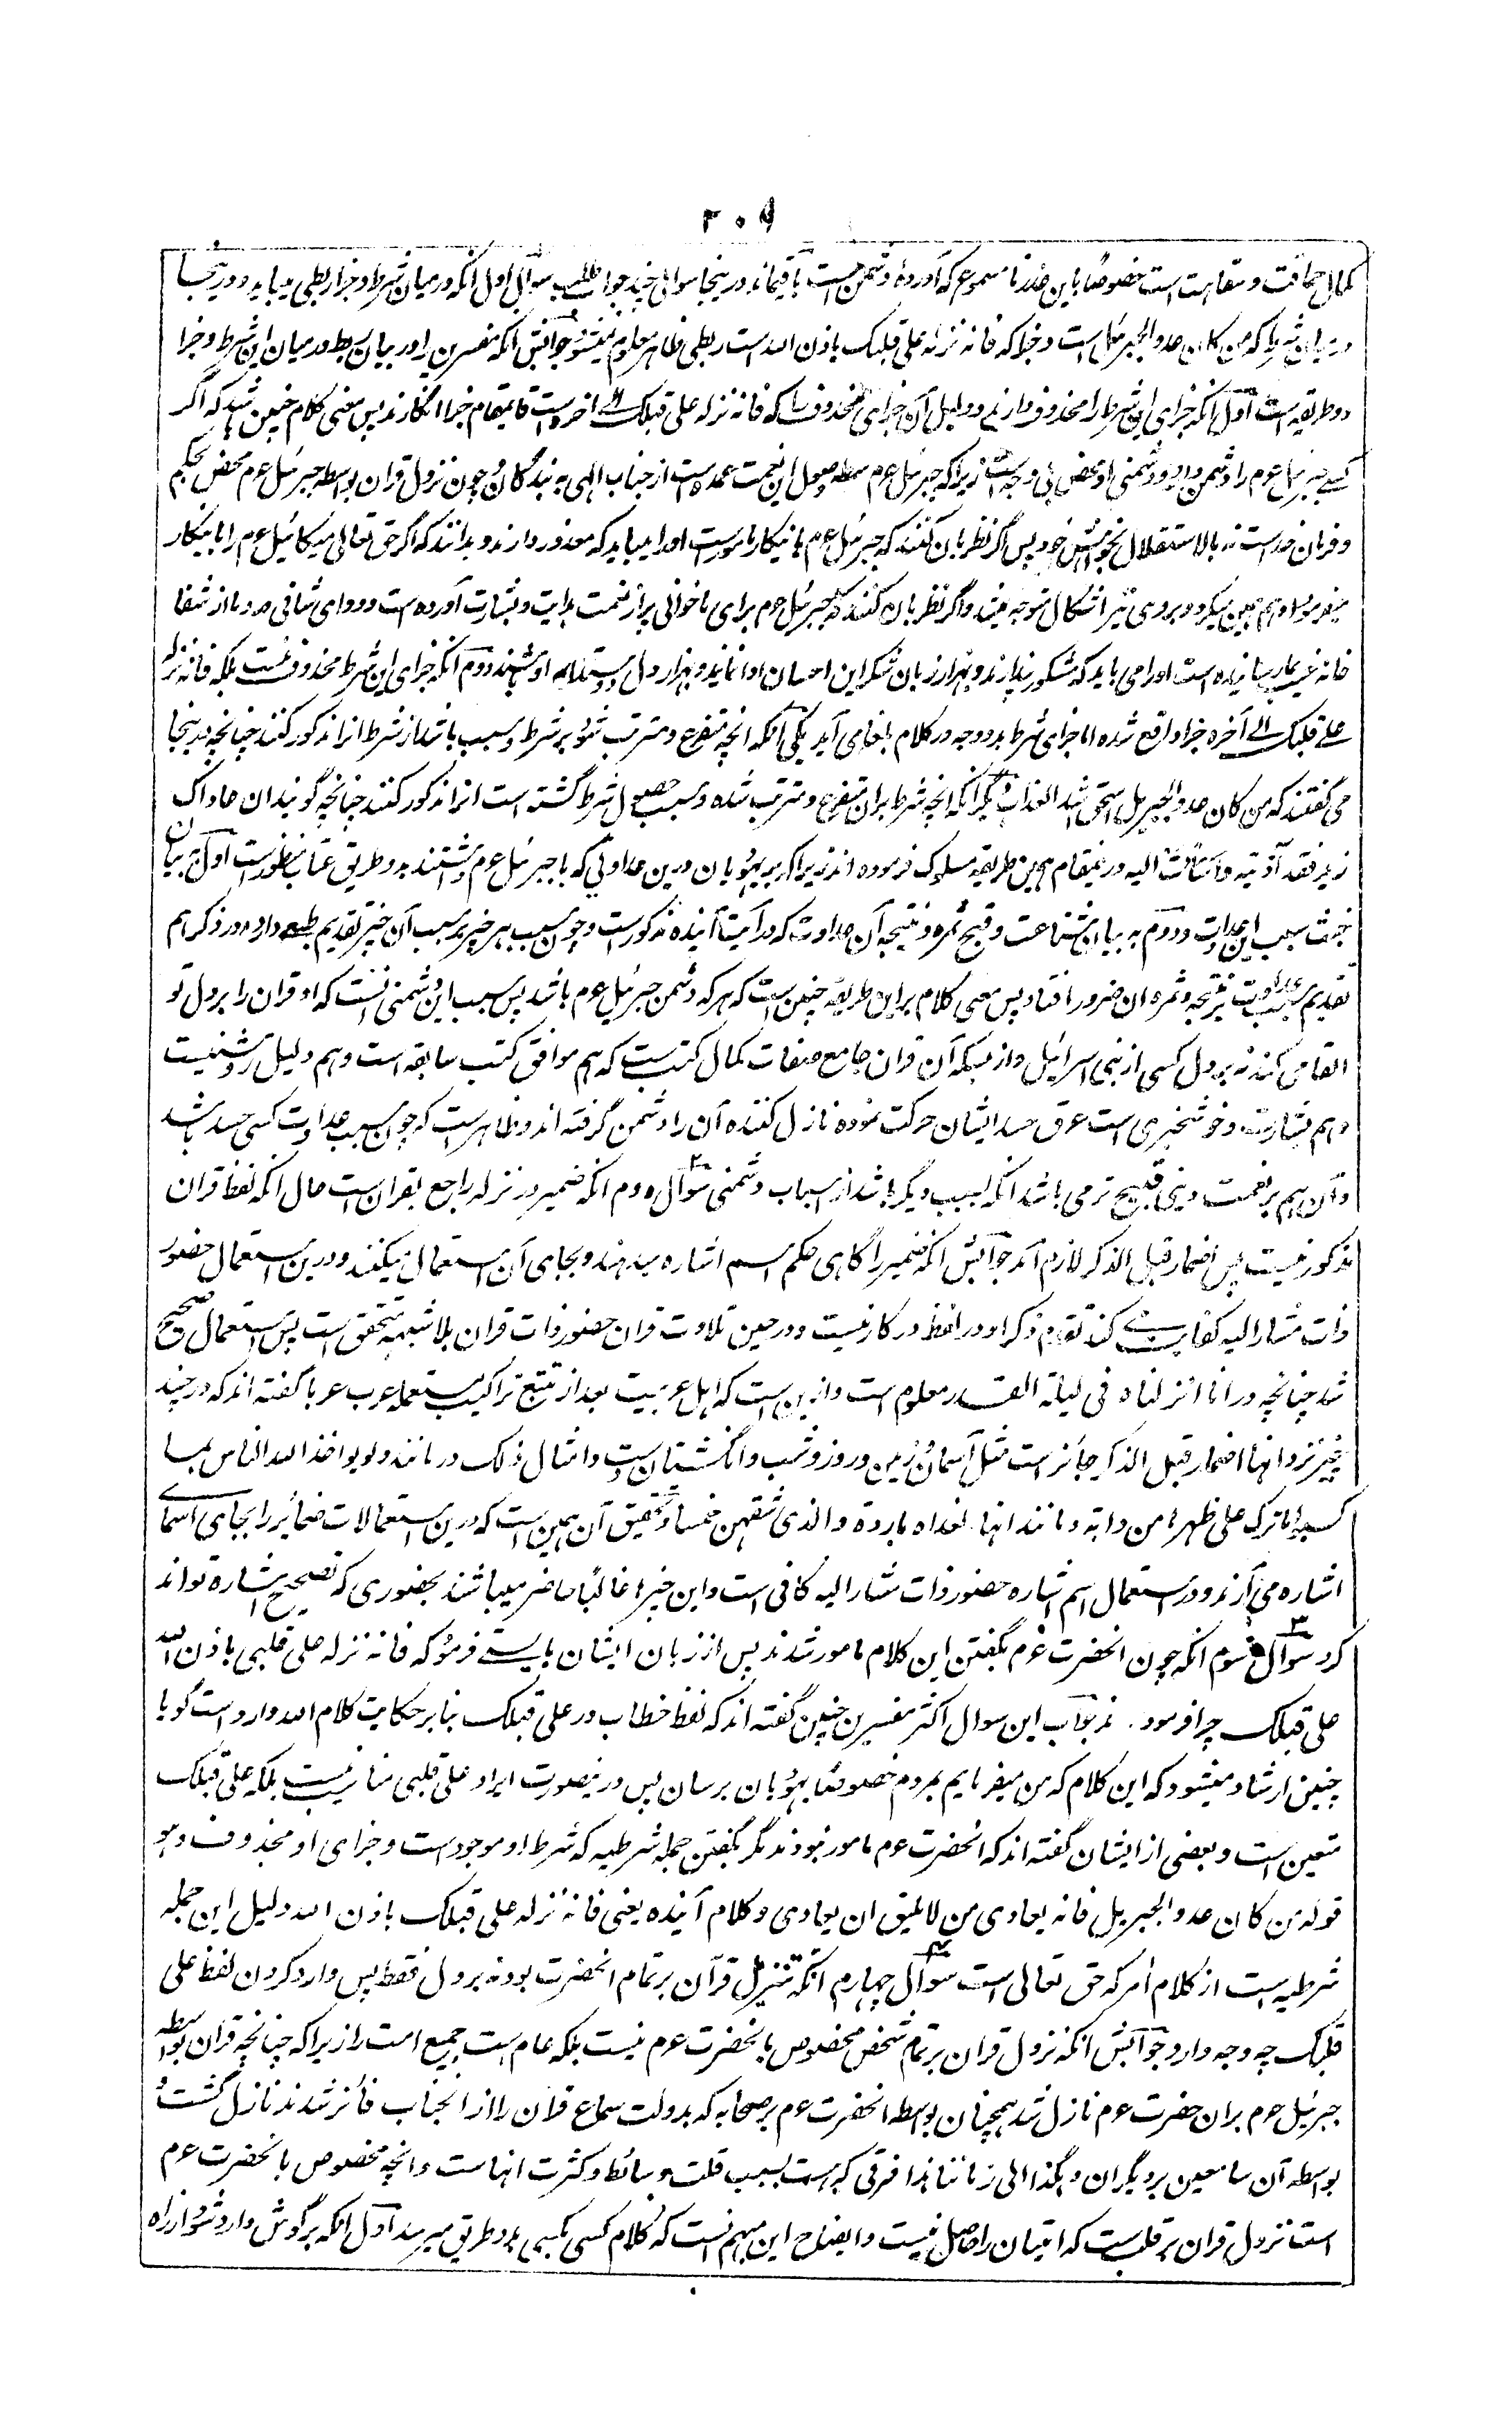 ۳۰۹
کمال حماقت و سفاهت است خصوصًا باین عذر نامسموع که آوردۀ دشمن است باقیماند درینجا سوالی چند جواب طلب سوال اول انکه درمیان شرط و جزا ربطی میباید و درینجا
درمیان شرط که من کان عدوا لجبریل است و جزا که فانه نزله علی قلبک باذن الله است ربطی ظاهر معلوم نمیشود جوابش انکه مفسرین را در بیان ربط درمیان این شرط و جزا
دو طریقه است اول انکه جزای این شرط را محذوف دارند و دلیل آن جزای محذوف را که فانه نزله علی قلبک الی اخره است قایمقام جزا انگارند پس معنی کلام چنین شد که اگر
کسے جبرئیل عوم را دشمن دارد و دشمنی او محض بی وجه است زیرا که جبرئیل عوم واسطه وصول این نعمت عمده است از جناب الهی به بندگان و چون نزول قران بواسطه جبرئیل عوم محض بحکم
و فرمان خداست نه بالاستقلال بخواهش خود پس اگر نظر بان کنند که جبرئیل عوم باینکار مامور است اورا میباید که معذور دارند و بدانند که اگر حق تعالی میکائیل عوم را باینکار
میفرمود او هم همین میکرد و بروی نیز اشکال متوجه میشد و اگر نظر بان کنند که جبرئیل عوم برای ما خوانی پر از نعمت هدایت و بشارت آورده است و دوای شافی مر ما را از شفا
خانه غیب بما رسانیده است اورا می باید که مشکور پندارند و بهزار زبان شکر این احسان ادا نمایند و بهزار دل دوستدار او باشند دوم انکه جزای این شرط محذوف نیست بلکه فانه نزله
علے قلبک الی آخره جزا واقع شده اما جزای شرط بدو وجه در کلام بلغا می آید یکی آنکه انچه متفرع و مترتب شود بر شرط و مسبب باشد از شرط انرا مذکور کنند چنانچه درینجا
می گفتند که من کان عدوا لجبریل استحق اشد العذاب دیگر انکه انچه شرط بران متفرع و مترتب شده و سبب حصول شرط گشته است انرا مذکور کنند چنانچه گویند ان عاداک
زید فقد آذیته و اسأت الیه درینمقام همین طریقه مسلوک فرموده اند زیرا که بر یهودیان درین عداوتی که با جبرئیل عوم داشتند بدو طریق عتاب منظور است اول به بیان
خبث سبب این عداوت و دوم به بیان شناعت و قبح ثمره و نتیجه آن عداوت که در آیت آینده مذکور است و چون سبب هر چیز بر مسبب آن چیز تقدیم طبعی دارد در ذکر هم
تقدیم سبب عداوت بر نتیجه و ثمره ان ضرور افتاد پس معنی کلام برین طریقه چنین است که هر که دشمن جبرئیل عوم باشد پس سبب این دشمنی انست که او قران را بر دل تو
القا می کند نه بر دل کسی از بنی اسرائیل و از بسکه آن قران جامع صفات کمال کتب است که هم موافق کتب سابقه است و هم دلیل روشنیست
و هم بشارت و خوشخبری است عرق حسد ایشان حرکت نموده نازل کننده آن را دشمن گرفته اند و ظاهر است که چون سبب عداوت کسی حسد باشد
و آن هم بر نعمت دینی قبیح تر می باشد انکه بسبب دیگر باشد از اسباب دشمنی سوال دوم انکه ضمیر در نزله راجع بقران است حال انکه لفظ قران
مذکور نیست پس اضمار قبل الذکر لازم آمد جوابش انکه ضمیر را گاهی حکم اسم اشاره میدهند و بجای آن استعمال میکنند و درین استعمال حضور
ذات مشار الیه کفایت می کند تقدم ذکر او در لفظ درکار نیست و در حین تلاوت قران حضور ذات قران بلا شبهه متحقق است پس استعمال صحیح
شد چنانچه در انا انزلناه فی لیلة القدر معلوم است و ازین است که اهل عربیت بعد از تتبع تراکیب مستعمله عرب عربا گفته اند که در چند
چیز نزد انها اضمار قبل الذکر جائز است مثل آسمان و زمین و روز و شب و انگشتان دست و امثال ذلک در مانند و لو یواخذ الله الناس بما
کسبوا ما ترک علی ظهرها من دابة و مانند انها لغداه باردة و الذی شقهن خمسا و تحقیق آن همین است که درین استعمالات ضمائر را بجای اسمای
اشاره می آرند و در استعمال اسم اشاره حضور ذات مشار الیه کافی است و این چیزها غالبًا حاضر میباشند بحضوری که تصحیح اشاره تواند
کرد سوال سوم انکه چون انحضرت عوم بگفتن این کلام مامور شدند پس از زبان ایشان بایستے فرمود که فانه نزله علی قلبی باذن الله
علی قلبک چرا فرمود. در جواب این سوال اکثر مفسرین چنین گفته اند که لفظ خطاب در علی قلبک بنا بر حکایت کلام الله وارد است گویا
چنین ارشاد میشود که این کلام که من میفرمایم بمردم خصوصًا یهودیان برسان پس درینصورت ایراد علی قلبی مناسب نیست بلکه علی قلبک
متعین است و بعضی از ایشان گفته اند که انحضرت عوم مامور نبودند مگر بگفتن جمله شرطیه که شرط او موجود است و جزای او محذوف و هو
قوله من کان عدوا لجبریل فانه یعادی من لا یلیق ان یعادی و کلام آینده یعنی فانه نزله علی قلبک باذن الله دلیل این جمله
شرطیه است از کلام امر که حق تعالی است سوال چهارم انکه تنزیل قرآن بر تمام انحضرت بود نه بر دل فقط پس وارد کردن لفظ علی
قلبک چه وجه دارد جوابش انکه نزول قران بر تمام شخص مخصوص بانحضرت عوم نیست بلکه عام است جمیع امت را زیرا که چنانچه قران بواسطه
جبرئیل عوم بران حضرت عوم نازل شد همچنان بواسطه انحضرت عوم بر صحابه که بدولت سماع قران را از انجناب فائز شدند نازل گشت و
بواسطه آن سامعین بر دیگران و هکذا الی زماننا هذا فرقی که هست بسبب قلت وسائط و کثرت انهاست و انچه مخصوص بانحضرت عوم
است نزول قران بر قلب است که امتیان را حاصل نیست و ایضاح این مبهم انست که کلام کسی بکسی بدو طریق میرسد اول انکه بر گوش وارد شود و از راه